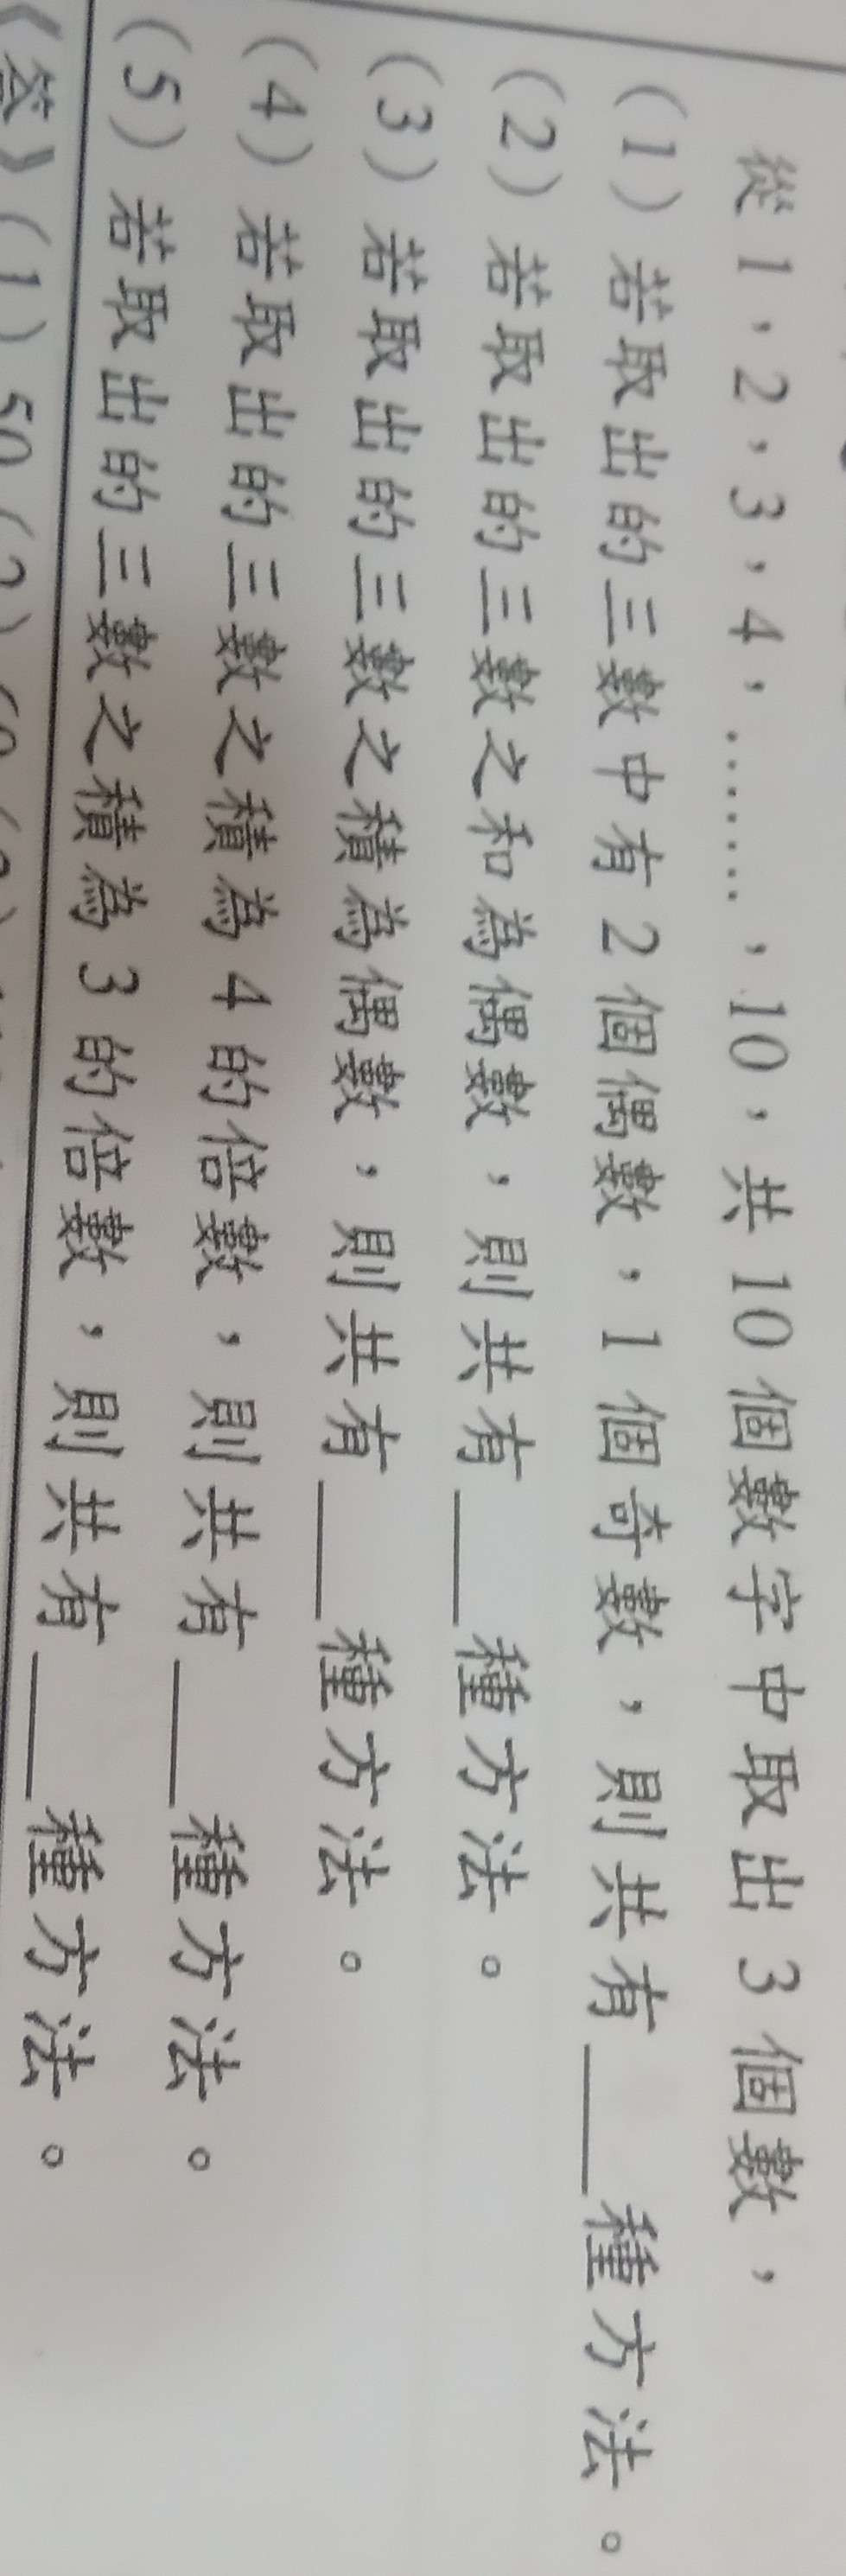 從 1，2，3，4，……，10，共 10 個數字中取出 3 個數，
(1) 若取出的三數中有 2 個偶數，1 個奇數，則共有___種方法。
(2) 若取出的三數之和為偶數，則共有___種方法。
(3) 若取出的三數之積為偶數，則共有___種方法。
(4) 若取出的三數之積為 4 的倍數，則共有___種方法。
(5) 若取出的三數之積為 3 的倍數，則共有___種方法。
《答》(1) 50 (2)